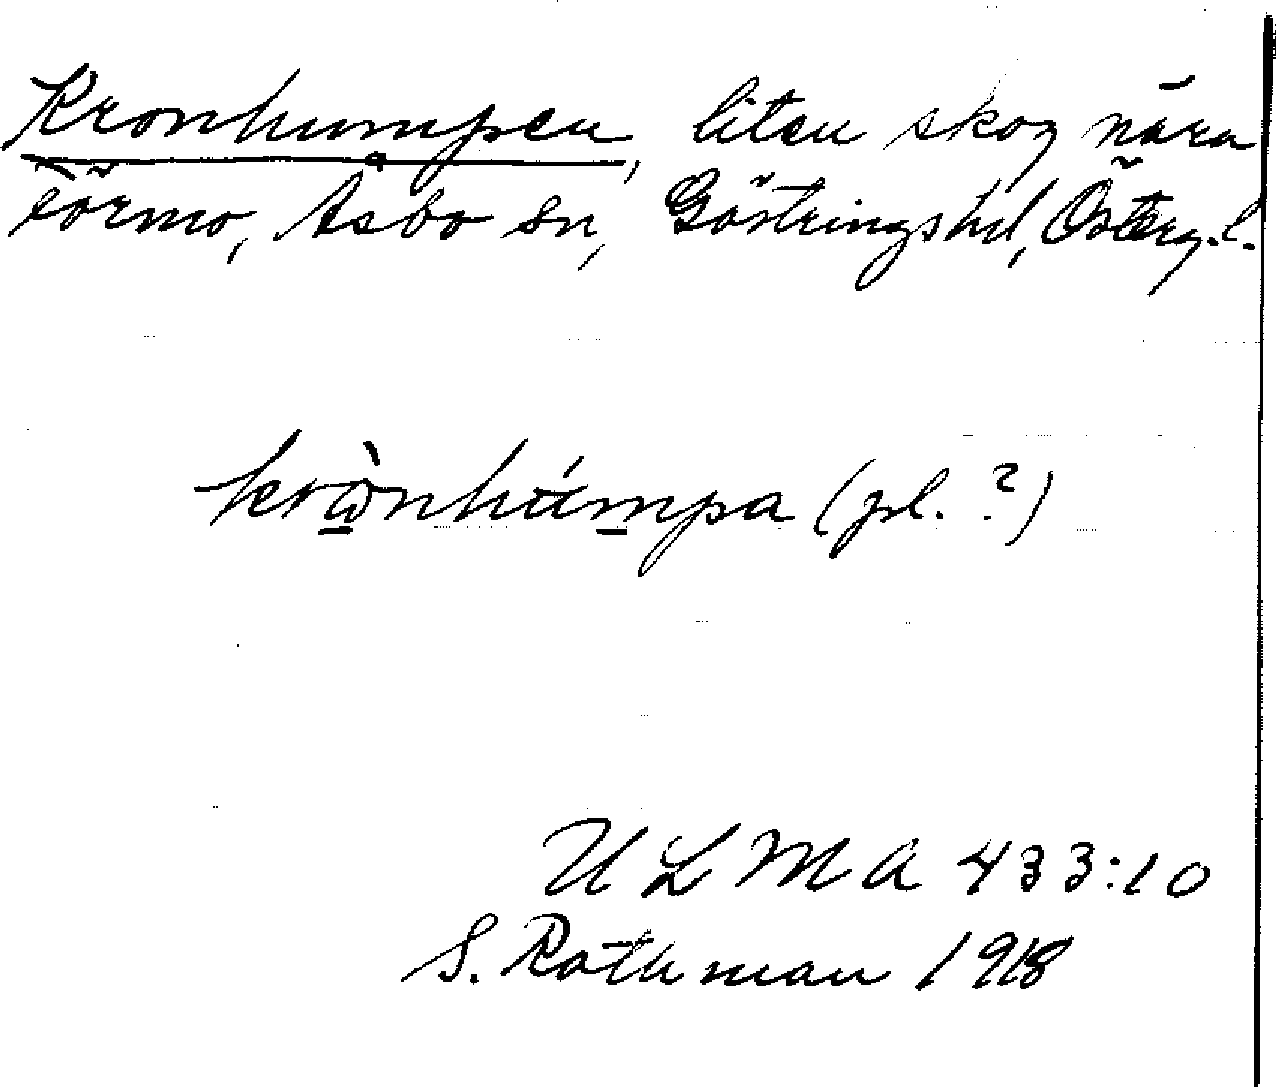 Kronhumpen, liten skog nära
Lörmo, Åsbo sn, Göstringshd, Österg.l.
krònhúmpa (pl. ?)
ULMA 433:10
S. Rothman 1918